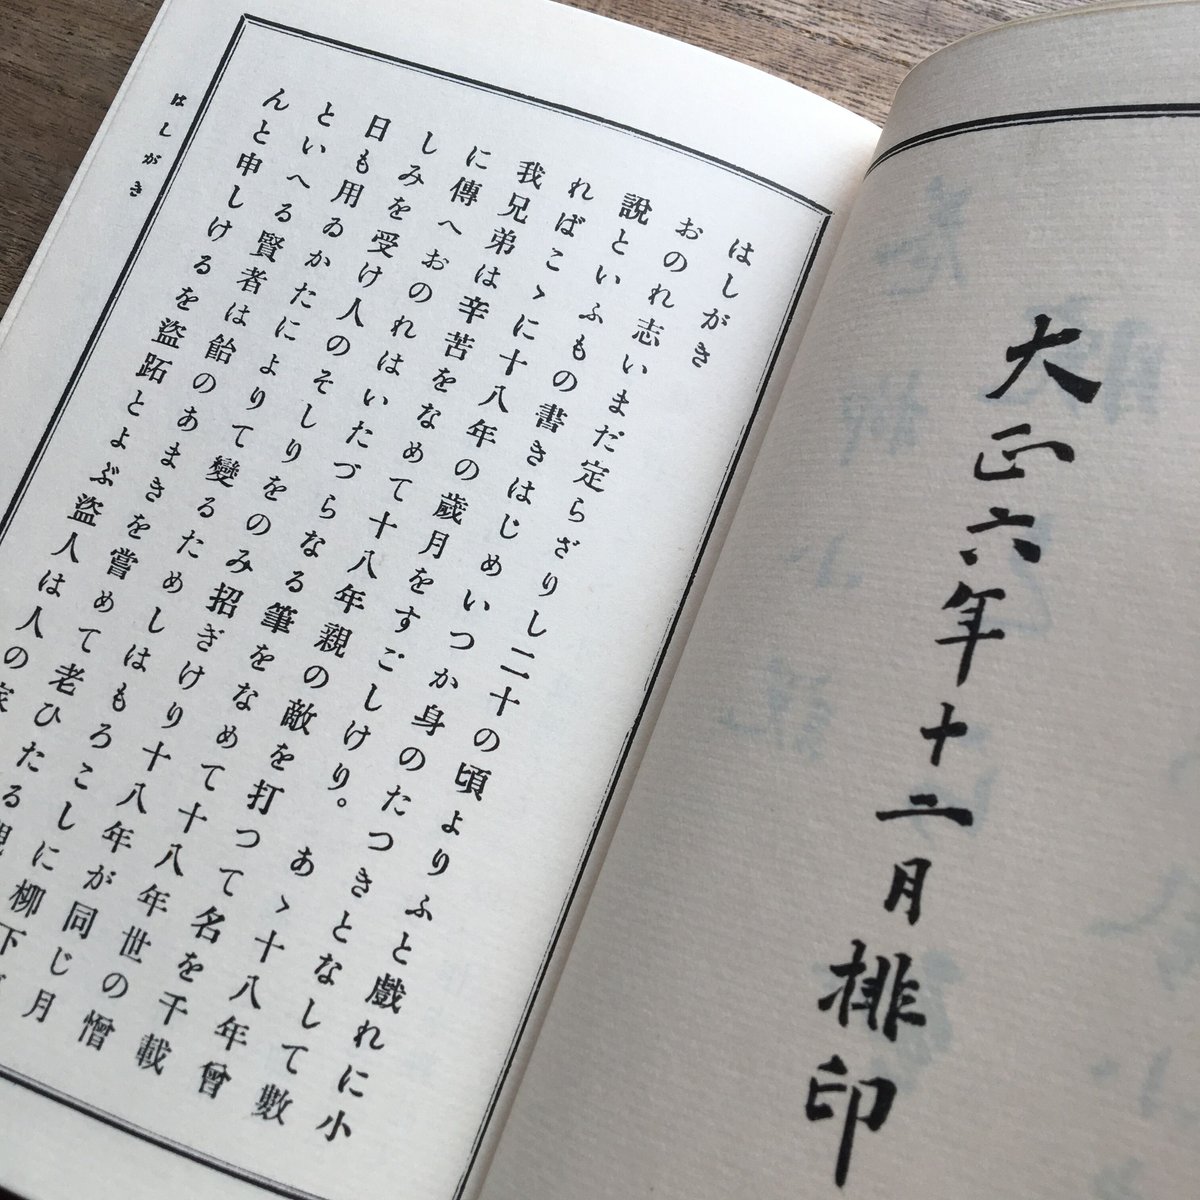 大正六年十二月排印
はしがき
おのれ志いまだ定らざりし二十の頃よりふと戲れに小
說といふもの書きはじめいつか身のたつきとなして數
ればこゝに十八年の歲月をすごしけり。 あゝ十八年曾
我兄弟は辛苦をなめて十八年親の敵を打つて名を千載
に傳へおのれはいたづらなる筆をなめて十八年世の憎
しみを受け人のそしりをのみ招ぎけり十八年が同じ月
日も用ゐかたによりて變るためしはもろこしに柳下
といへる賢者は飴のあまきを嘗めて老ひたる親
んと申しけるを盜跖とよぶ盜人は人の
はしがき